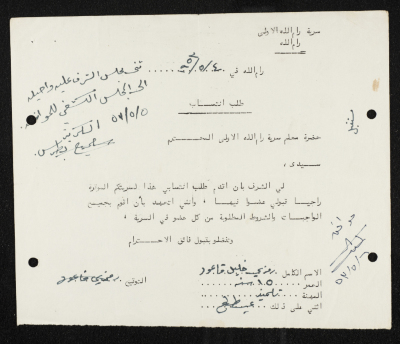 سرية رام الله الاولى
رام الله
رام الله في ٥٧/٥/٤
تنسب مجلس الشرف عليه واحيله
الى المجلس الكشفي للموافقة
٥٧/٥/٥
السكرتير
طلب انتساب
حضرة معلم سرية رام الله الاولى المحترم
سيدي ،
لي الشرف بان اقدم طلب انتسابي هذا لسريتكم الموقرة
راجيا قبولي عضوا فيها ، وانني اتعهد بان اقوم بجميع
الواجبات والشروط المطلوبة من كل عضو في السرية ،
وتفضلوا بقبول فائق الاحترام
الاسم الكامل : رمزي خليل قاعود
العمر ١٥ سنة
المهنة : تلميذ
اثنى على ذلك :
التوقيع رمزي قاعود